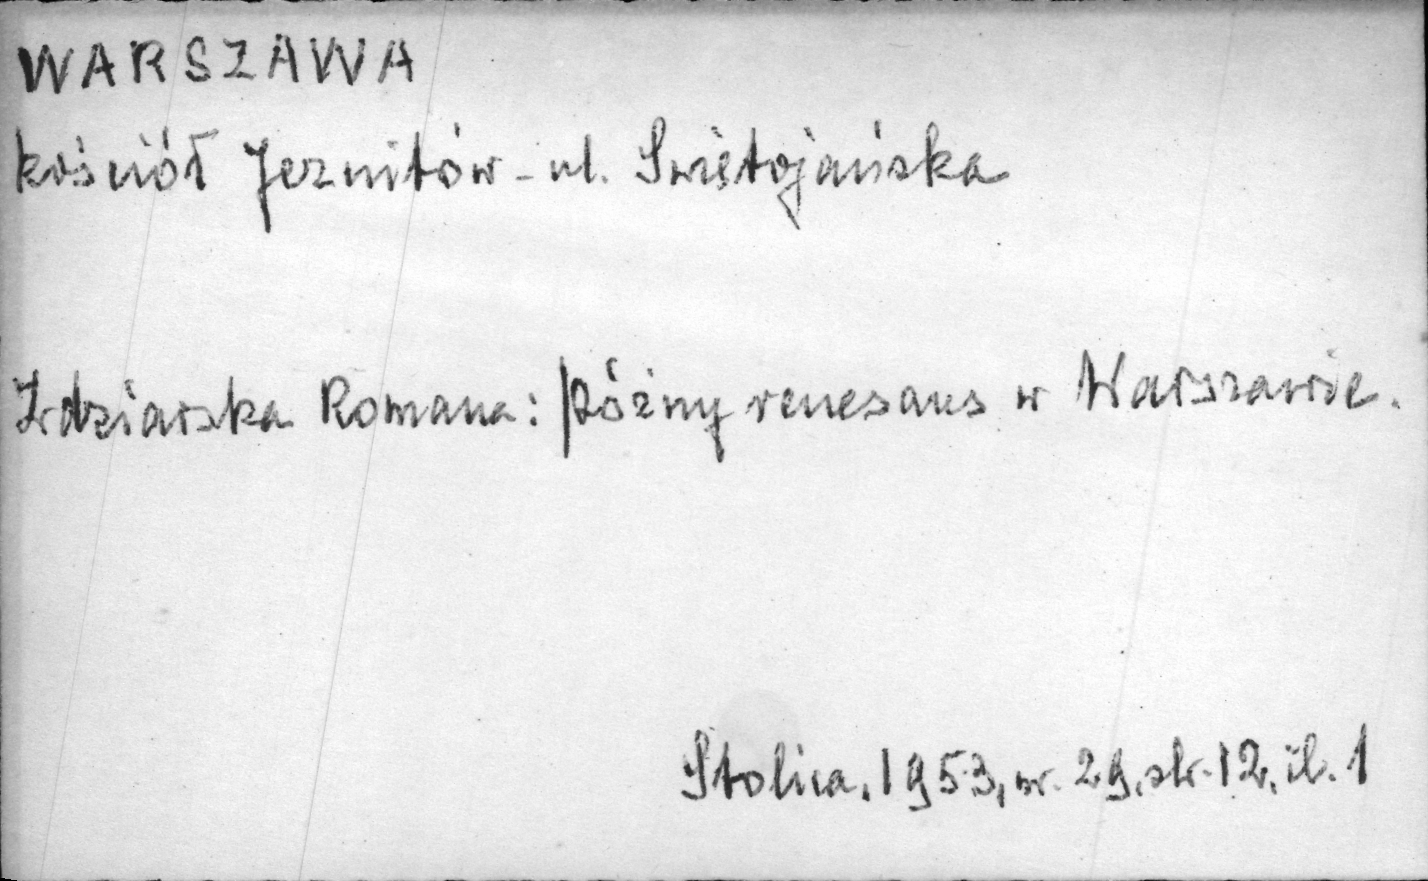 WARSZAWA
kościół Jezuitów - ul. Świętojańska
Zdziarska Romana: Późny renesans w Warszawie.
Stolica, 1953, nr. 29, str. 12, il. 1